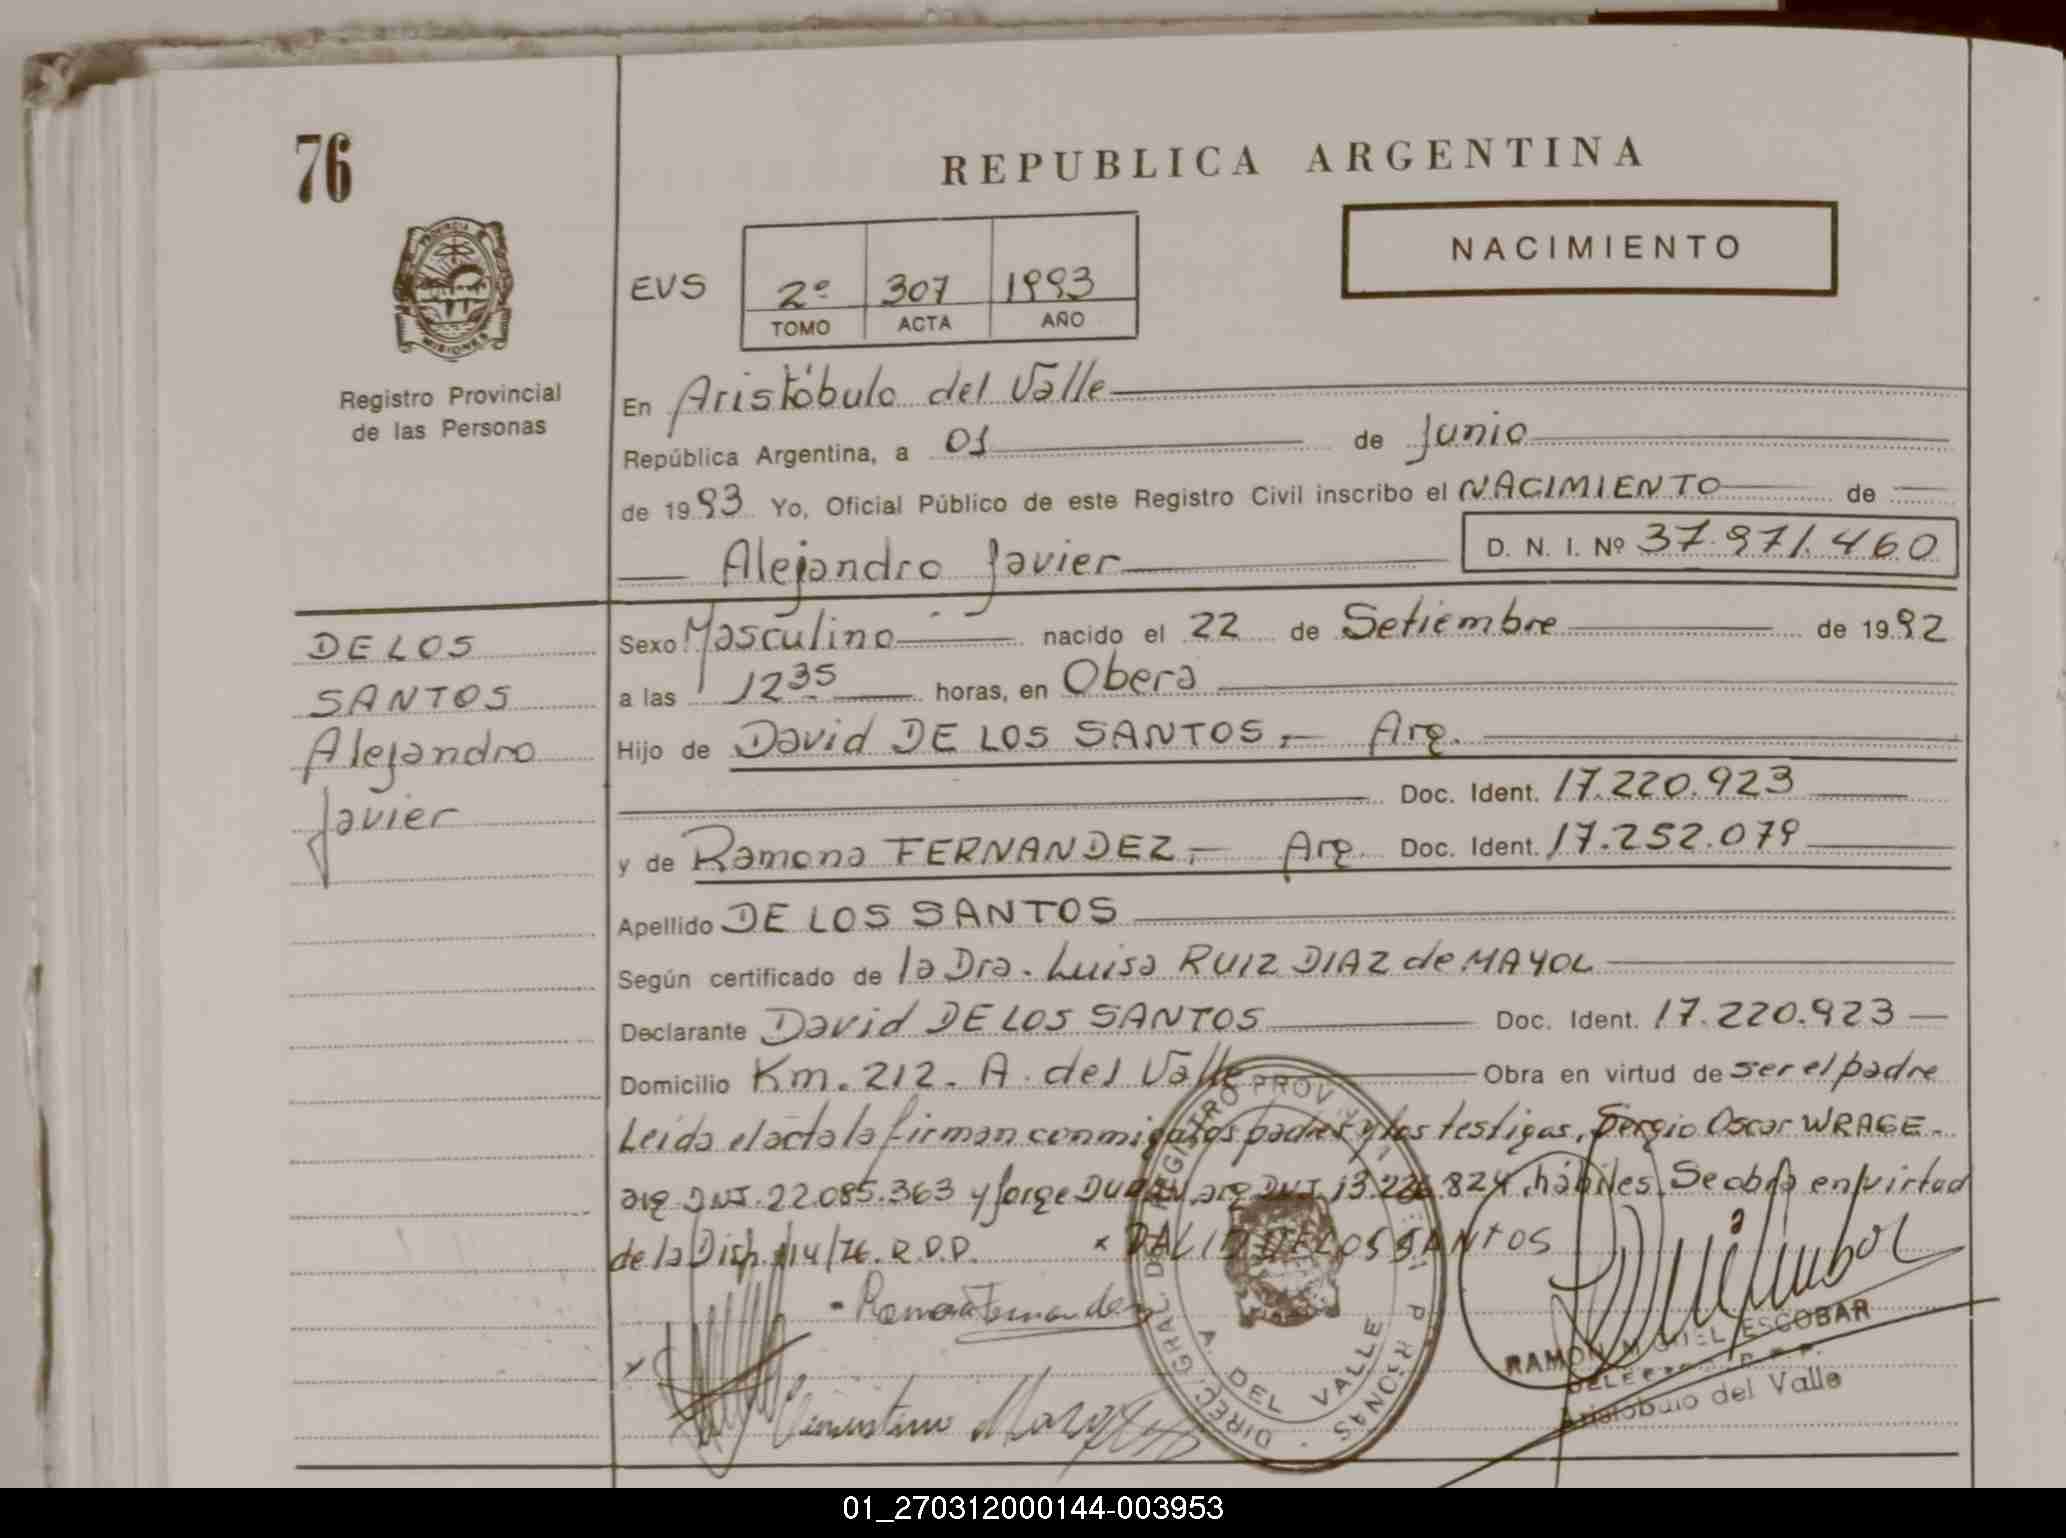 76
REPUBLICA ARGENTINA
NACIMIENTO
PROVINCIA DE
MISIONES
EVS 2º 307 1993
TOMO ACTA AÑO
Registro Provincial
de las Personas
En Aristóbulo del Valle
República Argentina, a 01 de Junio
de 1993 Yo, Oficial Público de este Registro Civil inscribo el NACIMIENTO de
Alejandro Javier D. N. I. Nº 37.971.460
DE LOS
SANTOS
Alejandro
Javier
Sexo Masculino nacido el 22 de Setiembre de 1992
a las 12 35 horas, en Obera
Hijo de David DE LOS SANTOS.- Arg.
Doc. Ident. 17.220.923
y de Ramona FERNANDEZ.- Arg. Doc. Ident. 17.252.079
Apellido DE LOS SANTOS
Según certificado de la Dra. Luisa RUIZ DIAZ de MAYOL
Declarante David DE LOS SANTOS Doc. Ident. 17.220.923
Domicilio Km. 212. A. del Valle Obra en virtud de ser el padre
Leída el acta la firman conmigo los padres y los testigos, Sergio Oscar WRAGE-
arg DNI.22.085.363 y Jorge arg DNI 13.226.824, hábiles. Se obra en virtud
de la Disp. 114/76. R.P.P. x DAVID DE LOS SANTOS
Ramona Fernandez
DIREC. GRAL. DE REGISTRO PROV. DE P RSONAS
A. DEL VALLE
RAMON MIGUEL ESCOBAR
Aristóbulo del Valle
01_270312000144-003953